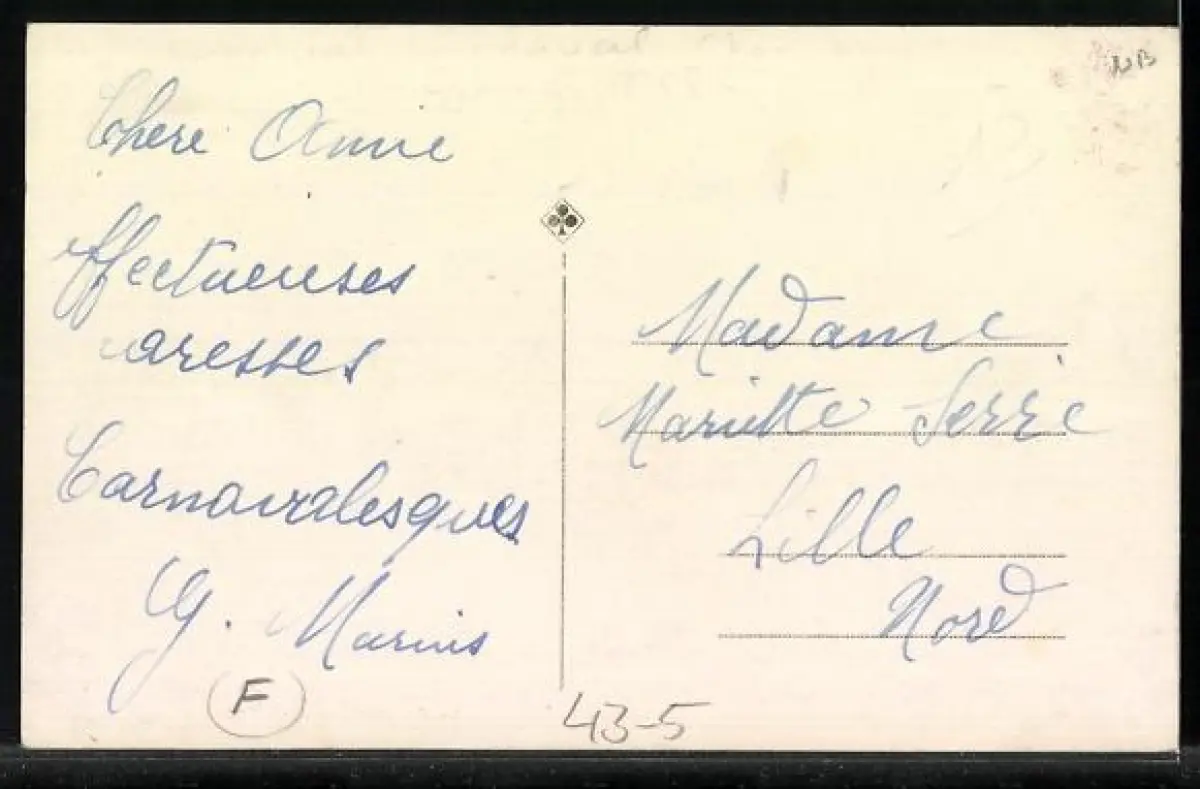 Chere Amie
affectueuses
caresses
Carnavalesques
G. Marius
F
43-5
Madame
Mariette Serre
Lille
Nord